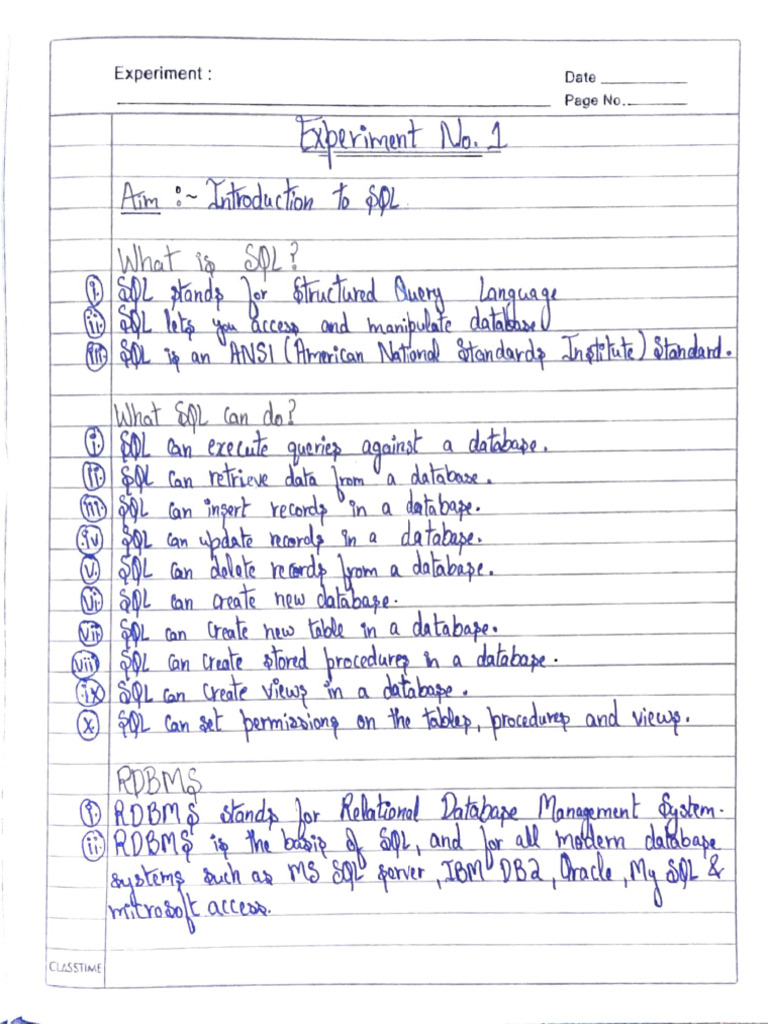 Experiment :
Date
Page No.
Experiment No. 1
Aim :~ Introduction to SQL.
What is SQL?
i. SQL stands for Structured Query Language
ii. SQL lets you access and manipulate database
iii. SQL is an ANSI (American National Standards Institute) Standard.
What SQL can do?
i. SQL can execute queries against a database.
ii. SQL can retrieve data from a database.
iii. SQL can insert records in a database.
iv SQL can update records in a database.
v. SQL can delete records from a database.
vi. SQL can create new database.
vii SQL can create new table in a database.
viii SQL can create stored procedures in a database.
ix SQL can create views in a database.
x SQL can set permissions on the tables, procedures and views.
RDBMS
i. RDBMS stands for Relational Database Management System.
ii. RDBMS is the basis of SQL, and for all modern database
systems such as MS SQL server, IBM DB2, Oracle, My SQL &
microsoft access.
CLASSTIME